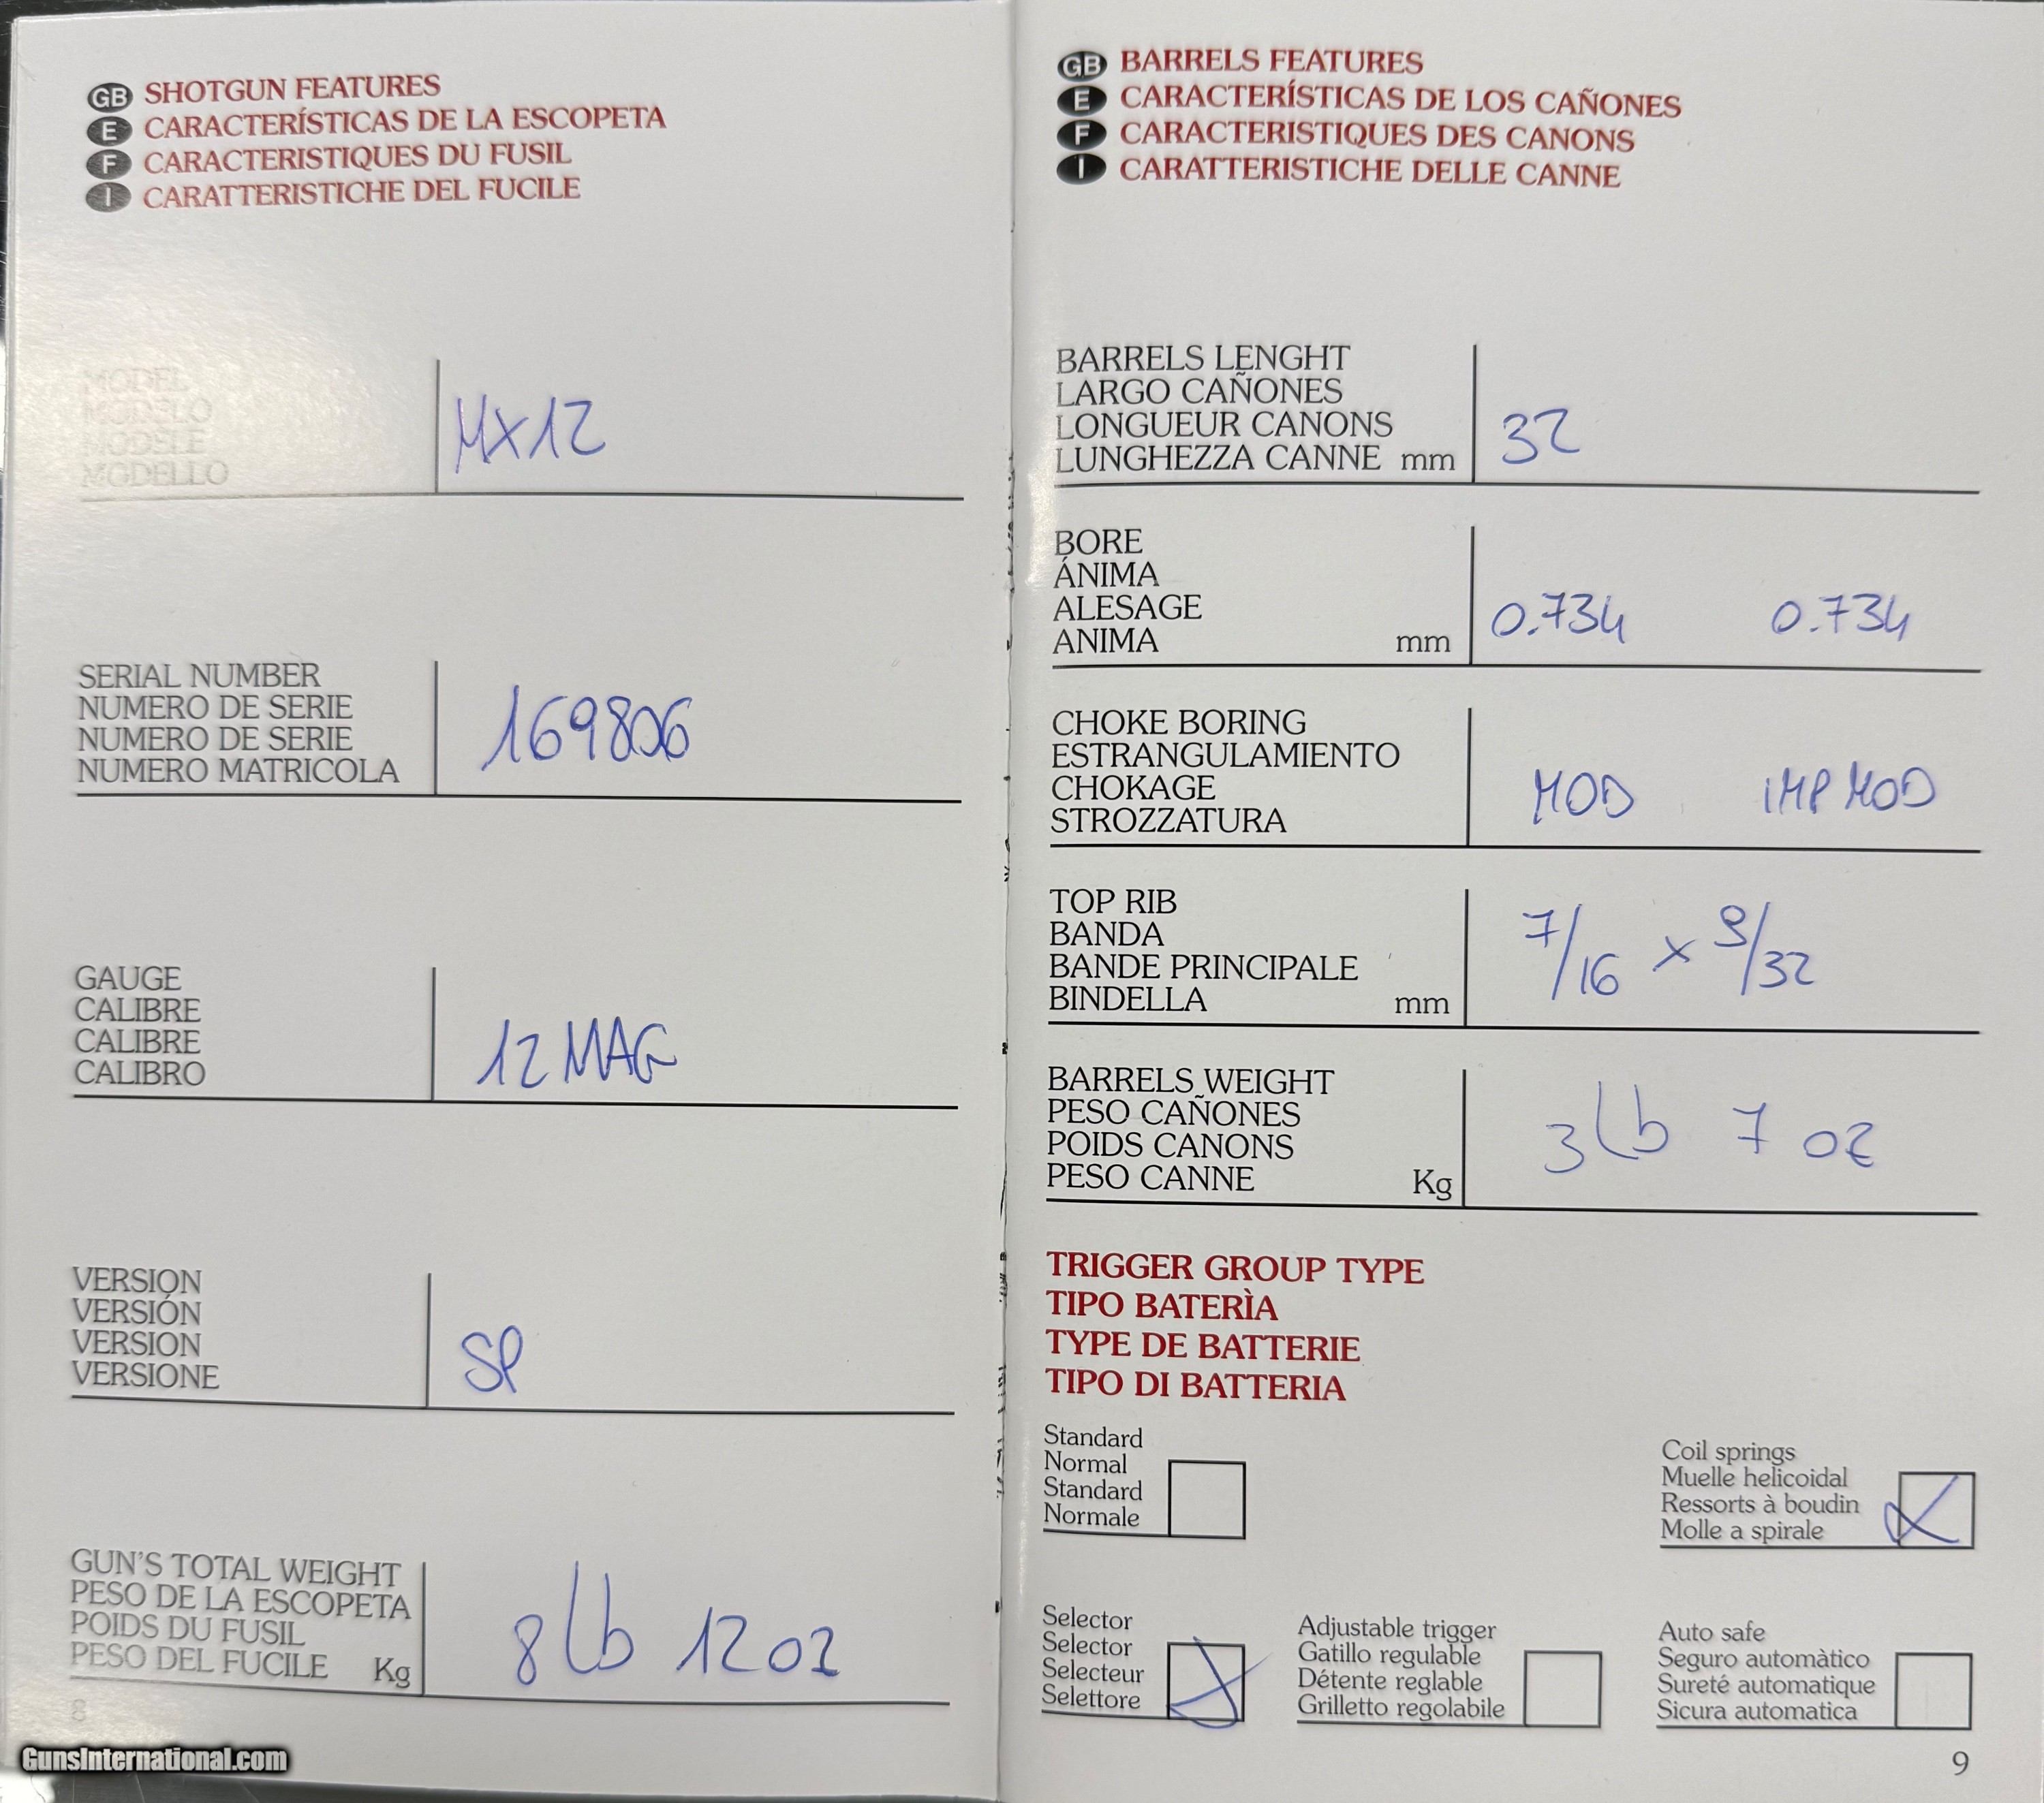 GB SHOTGUN FEATURES
E CARACTERÍSTICAS DE LA ESCOPETA
F CARACTERISTIQUES DU FUSIL
I CARATTERISTICHE DEL FUCILE
MODEL
MODELO
MODELE
MODELLO
MX12
SERIAL NUMBER
NUMERO DE SERIE
NUMERO DE SERIE
NUMERO MATRICOLA
169806
GAUGE
CALIBRE
CALIBRE
CALIBRO
12 MAG
VERSION
VERSIÓN
VERSION
VERSIONE
SP
GUN'S TOTAL WEIGHT
PESO DE LA ESCOPETA
POIDS DU FUSIL
PESO DEL FUCILE Kg
8 Lb 12 oz
8
GunsInternational.com
GB BARRELS FEATURES
E CARACTERÍSTICAS DE LOS CAÑONES
F CARACTERISTIQUES DES CANONS
I CARATTERISTICHE DELLE CANNE
BARRELS LENGHT
LARGO CAÑONES
LONGUEUR CANONS
LUNGHEZZA CANNE mm
32
BORE
ÁNIMA
ALESAGE
ANIMA mm
0.734 0.734
CHOKE BORING
ESTRANGULAMIENTO
CHOKAGE
STROZZATURA
MOD IMP MOD
TOP RIB
BANDA
BANDE PRINCIPALE
BINDELLA mm
7/16 x 9/32
BARRELS WEIGHT
PESO CAÑONES
POIDS CANONS
PESO CANNE Kg
3 Lb 7 oz
TRIGGER GROUP TYPE
TIPO BATERÌA
TYPE DE BATTERIE
TIPO DI BATTERIA
Standard
Normal
Standard
Normale
Coil springs
Muelle helicoidal
Ressorts à boudin
Molle a spirale
Selector
Selector
Selecteur
Selettore
Adjustable trigger
Gatillo regulable
Détente reglable
Grilletto regolabile
Auto safe
Seguro automàtico
Sureté automatique
Sicura automatica
9